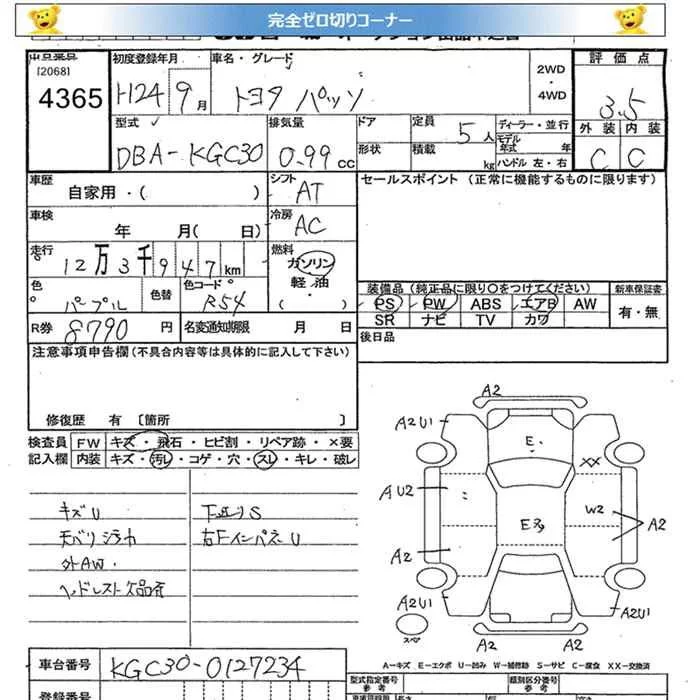 完全ゼロ切りコーナー
出品番号 初度登録年月 車名・グレード 評価点
(2068)
4365 H24 9月 トヨタ パッソ 2WD・4WD 3.5
型式 排気量 ドア 定員 5人 ディーラー・並行 外装 内装
DBA-KGC30 0.99cc 形状 積載 kg モデル年式 年 ハンドル 左・右 C C
車歴 シフト セールスポイント (正常に機能するものに限ります)
自家用・( ) AT
車検 冷房
年 月( 日) AC
走行 燃料
12万3千947km ガソリン
軽油
色 色替 色コード ( ) 装備品(純正品に限り○をつけてください) 新車保証書
パープル R54 PS PW ABS エアB AW 有・無
R券 8790円 名変通知期限 月 日 SR ナビ TV カワ
注意事項申告欄(不具合内容等は具体的に記入して下さい) 後日品
修復歴 有 〔箇所 〕
検査員 FW キズ・飛石・ヒビ割・リペア跡・×要
記入欄 内装 キズ・汚レ・コゲ・穴・スレ・キレ・破レ
キズU 下廻りS
天バリシミ
外AW 右FインパネU
ヘッドレスト欠品有
A2
A2U1
E
XX
AU2
W2
A2
A2
A2U1
A2U1
スペア
A2 A2
A−キズ E−エクボ U−凹み W−補修跡 S−サビ C−腐食 XX−交換済
車台番号 KGC30-0127234
型式指定番号 類別区分番号
参考 参考
登録番号